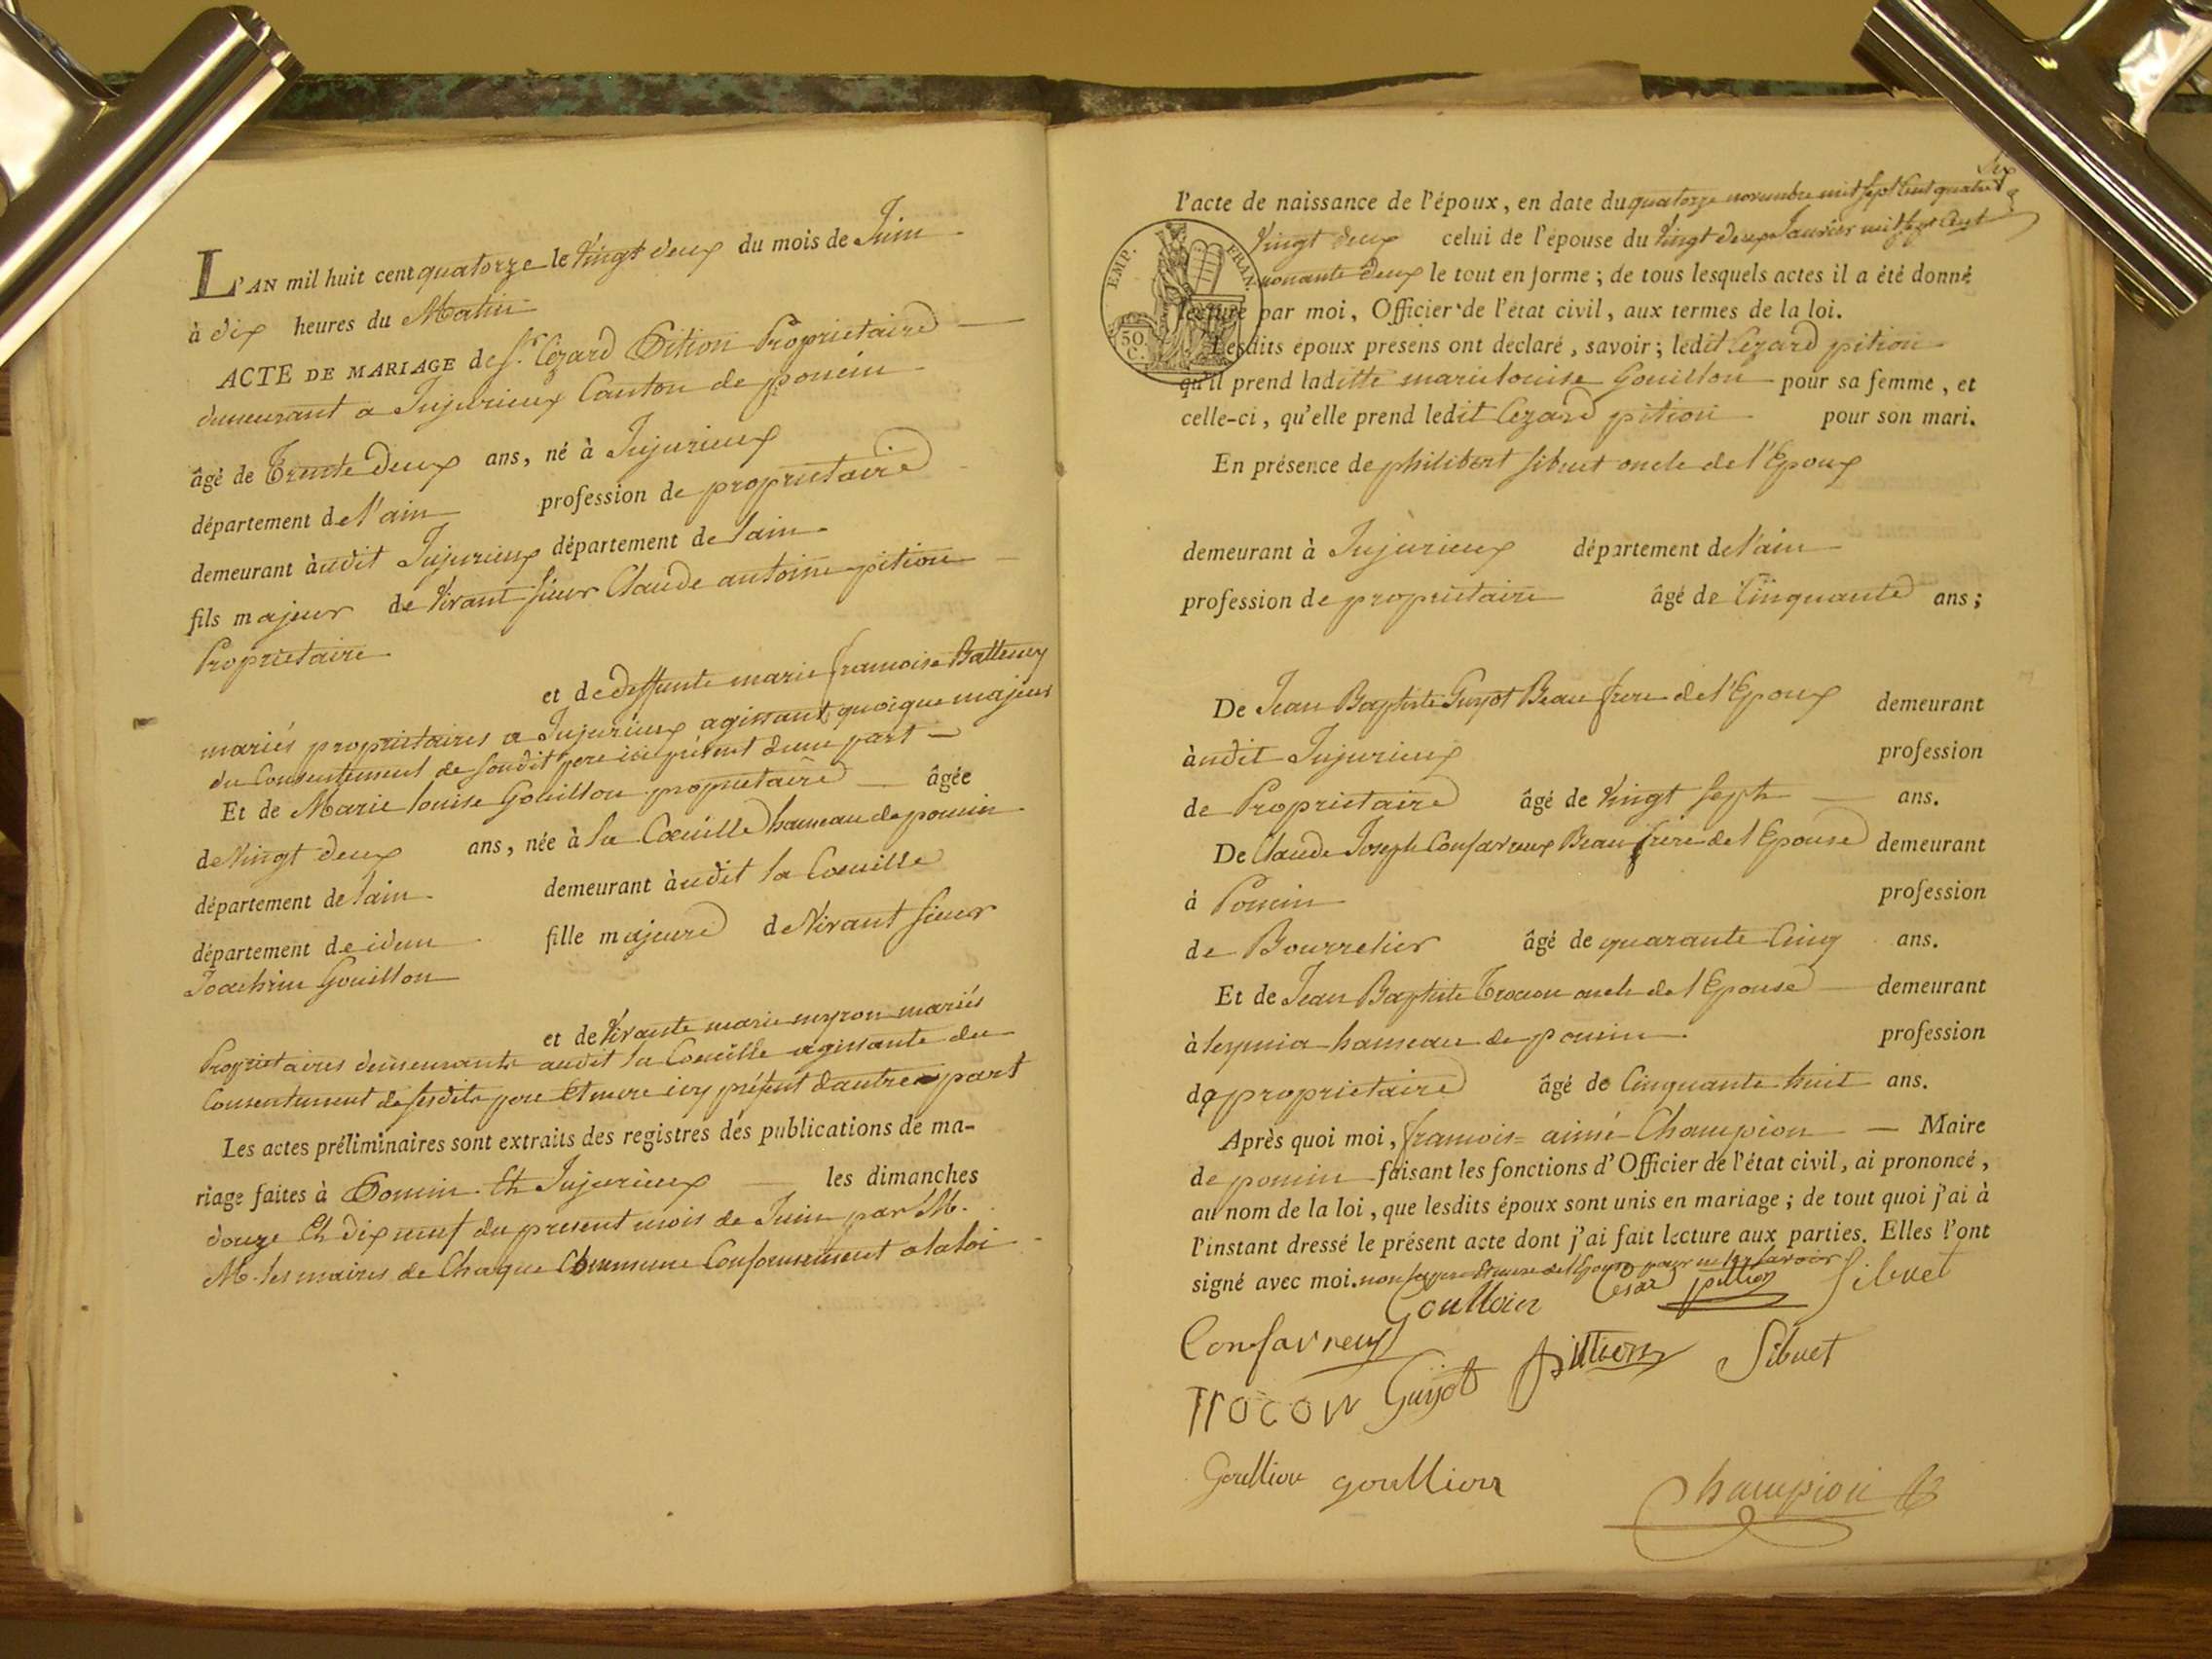 L'AN mil huit cent quatorze le vingt deux du mois de Juin
à dix heures du Matin
ACTE DE MARIAGE de Sr. Cézard Pition Proprietaire
demeurant a Jujurieux Canton de poncin
âgé de Trente deux ans, né à Jujurieux
département de l'ain profession de proprietaire
demeurant àudit Jujurieux département de lain
fils majeur de vivant sieur Claude antoine pition
Proprietaire
et de deffunte marie francoise
mariés proprietaires a Jujurieux agissant quoique majeur
du Consentement de sondit pere ici présent dune part
Et de Marie louise Gouillon proprietaire âgée
de vingt deux ans, née à la Coeuille hameau de poncin
département de lain demeurant àudit la Coeuille
département de idem fille majeure de vivant sieur
Joachim Gouillon
et de vivante marie neyron mariés
Proprietaires demeurants audit la Coeuille agissante du
Consentement de sesdits pere Et mere icy présent dautre part
Les actes préliminaires sont extraits des registres des publications de ma-
riage faites à Poncin Et Jujurieux les dimanches
douze Et dix neuf du present mois de Juin par M.
M. les maires de Chaque Commune Conformement a la loi
l'acte de naissance de l'époux, en date du quatorze novembre mil sept Cent quatre
vingt deux celui de l'épouse du vingt deux Janvier mil sept Cent
nonante deux le tout en forme ; de tous lesquels actes il a été donné
EMP. FRAN.
50 C.
lecture par moi, Officier de l'état civil, aux termes de la loi.
Lesdits époux présens ont déclaré, savoir ; ledit Cezard pition
qu'il prend laditte marie louise Gouillon pour sa femme, et
celle-ci, qu'elle prend ledit Cezard pition pour son mari.
En présence de philibert sibuet oncle de l'Epoux
demeurant à Jujurieux département de l'ain
profession de proprietaire âgé de Cinquante ans ;
De Jean Baptiste Guyot Beau frere de l'Epoux demeurant
àudit Jujurieux profession
de Proprietaire âgé de vingt sept ans.
De Claude Joseph Confavreux Beau frere de l Epouse demeurant
à Poncin profession
de Bourrelier âgé de quarante Cinq ans.
Et de Jean Baptiste Trocon oncle de l Epouse demeurant
à leymia hameau de poncin profession
de proprietaire âgé de Cinquante huit ans.
Après quoi moi, francois aimé Champion Maire
de poncin faisant les fonctions d'Officier de l'état civil, ai prononcé,
au nom de la loi, que lesdits époux sont unis en mariage ; de tout quoi j'ai à
l'instant dressé le présent acte dont j'ai fait lecture aux parties. Elles l'ont
signé avec moi. non
Goullion César pittion Sibuet
Confavreux
Trocon Guyot pittion Sibuet
Goullion goullion
Champion